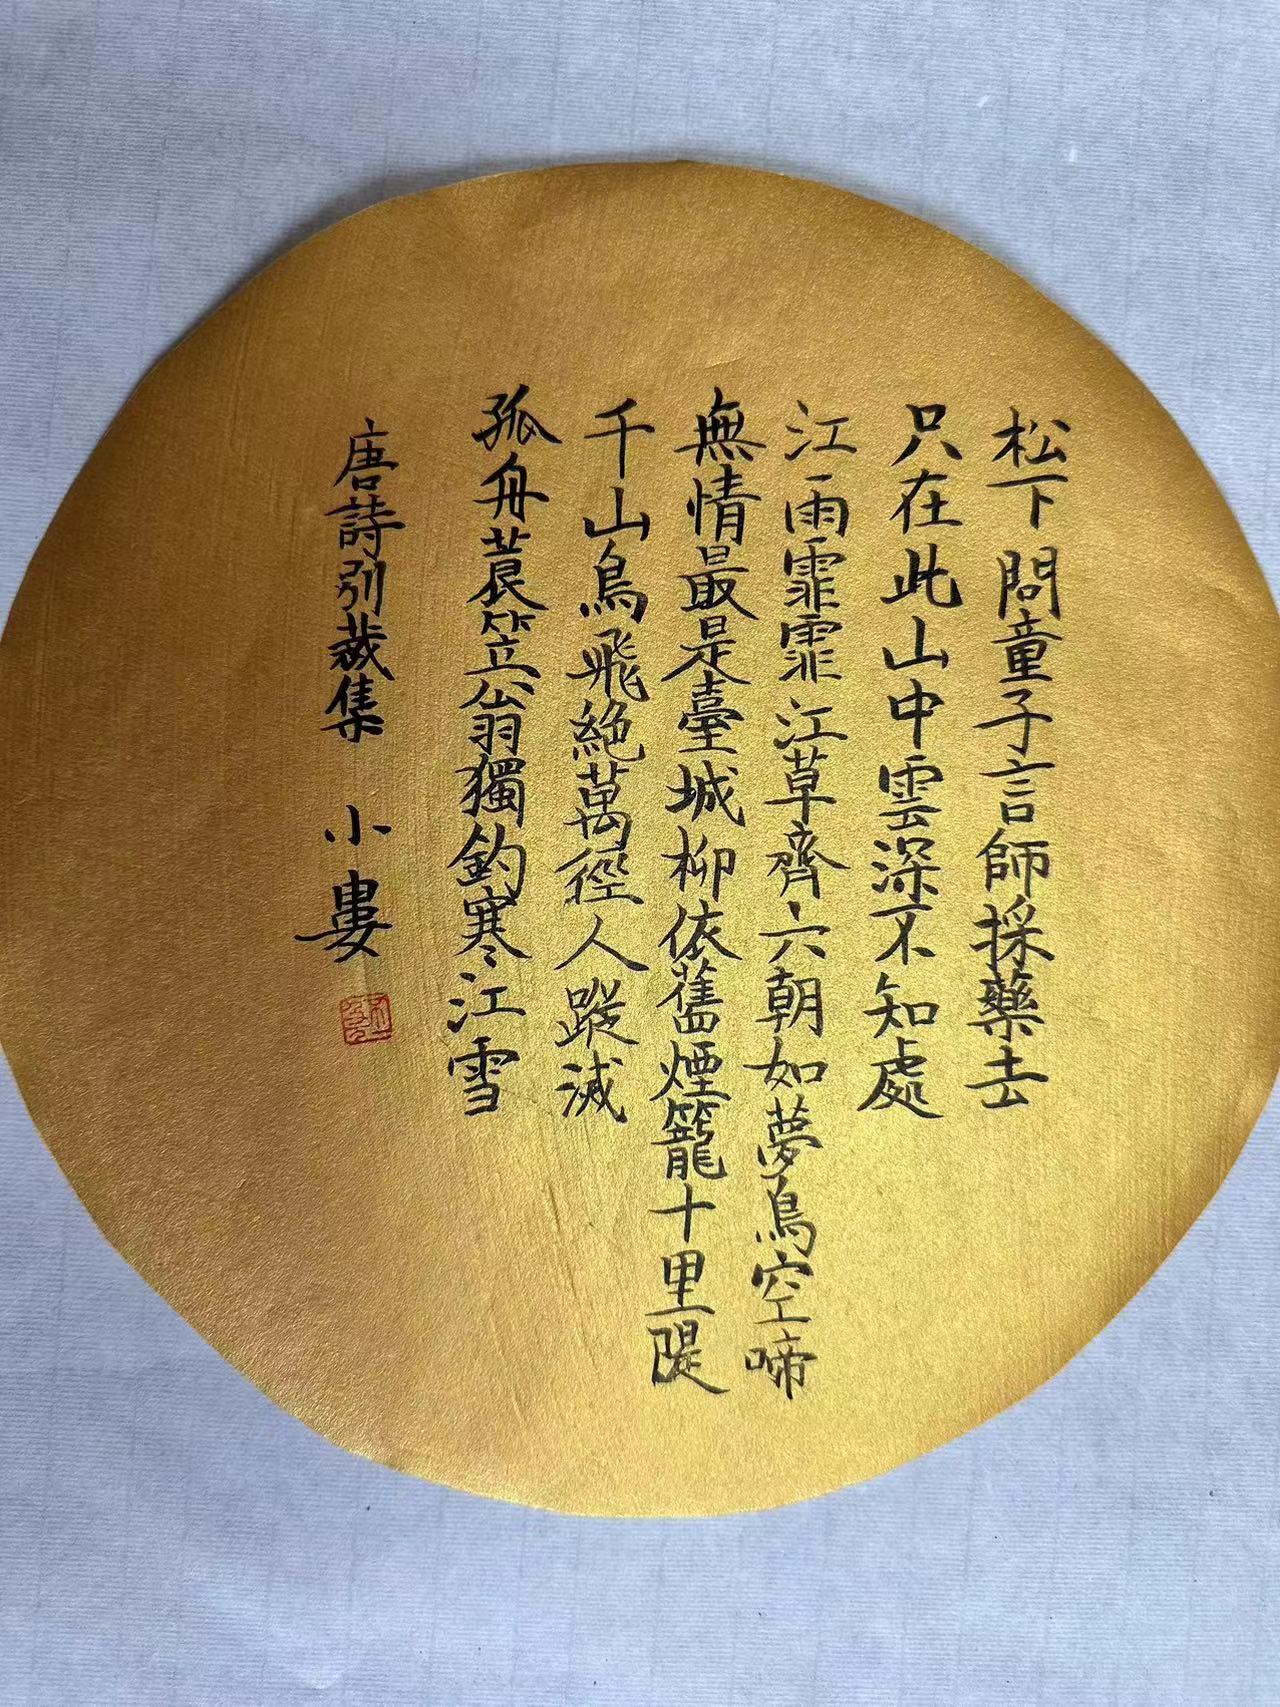 松下問童子言師採藥去
只在此山中雲深不知處
江雨霏霏江草齊六朝如夢鳥空啼
無情最是臺城柳依舊煙籠十里隄
千山鳥飛絕萬徑人蹤滅
孤舟蓑笠翁獨釣寒江雪
唐詩引裁集 小婁